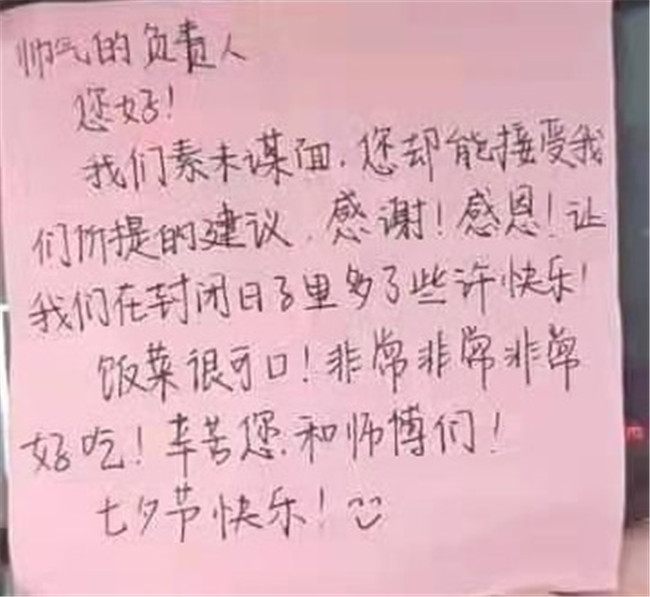 帅气的负责人
您好!
我们素未谋面,您却能接受我
们所提的建议,感谢!感恩!让
我们在封闭日子里多了些许快乐!
饭菜很可口!非常非常非常
好吃!辛苦您和师傅们!
七夕节快乐!